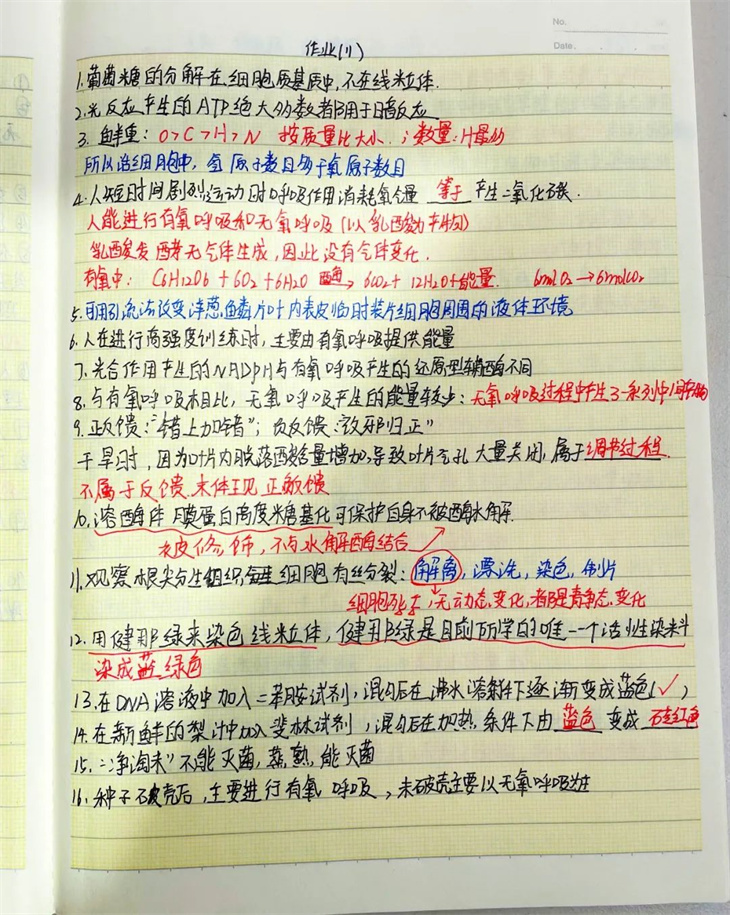 No.
Date.
作业(11)
1.葡萄糖的分解在细胞质基质中,不在线粒体.
2.光反应产生的ATP绝大多数都用于暗反应
3. 鲜重: O>C>H>N 按质量比大小. ;数量:H最多
所以活细胞中, 氢原子数目多于氧原子数目
4.人短时间剧烈运动时呼吸作用消耗氧含量 等于 产生二氧化碳.
人能进行有氧呼吸和无氧呼吸(以乳酸为产物)
乳酸发酵无气体生成,因此没有气体变化.
有氧中: C6H12O6 + 6O2 + 6H2O 酶→ 6CO2 + 12H2O+能量. 6molO2→6molCO2
5.可用引流法改变洋葱鱼鳞片叶内表皮临时装片细胞周围的液体环境
6.人在进行高强度训练时,主要由有氧呼吸提供能量
7.光合作用产生的NADPH与有氧呼吸产生的还原型辅酶不同
8.与有氧呼吸相比,无氧呼吸产生的能量较少:无氧呼吸过程中产生了一系列中间产物
9.正反馈:"错上加错"; 负反馈:"改邪归正"
干旱时,因为叶片内脱落酸含量增加,导致叶片气孔大量关闭,属于调节过程.
不属于反馈.未体现正负反馈
10.溶酶体膜蛋白高度糖基化可保护自身不被酶水解.
被修饰,不与水解酶结合
11.观察根尖分生组织细胞有丝分裂:解离,漂洗,染色,制片
细胞死亡,无动态变化,都是静态变化
12.用健那绿来染色线粒体,健那绿是目前所学的唯一一个活性染料
染成蓝绿色
13.在DNA溶液中加入二苯胺试剂,混匀后在沸水浴条件下逐渐变成蓝色(✓)
14.在新鲜的梨汁中加入斐林试剂,混匀后在加热条件下由 蓝色 变成 砖红色
15."净淘米"不能灭菌,蒸熟,能灭菌
16.种子破壳后,主要进行有氧呼吸,未破壳主要以无氧呼吸为主